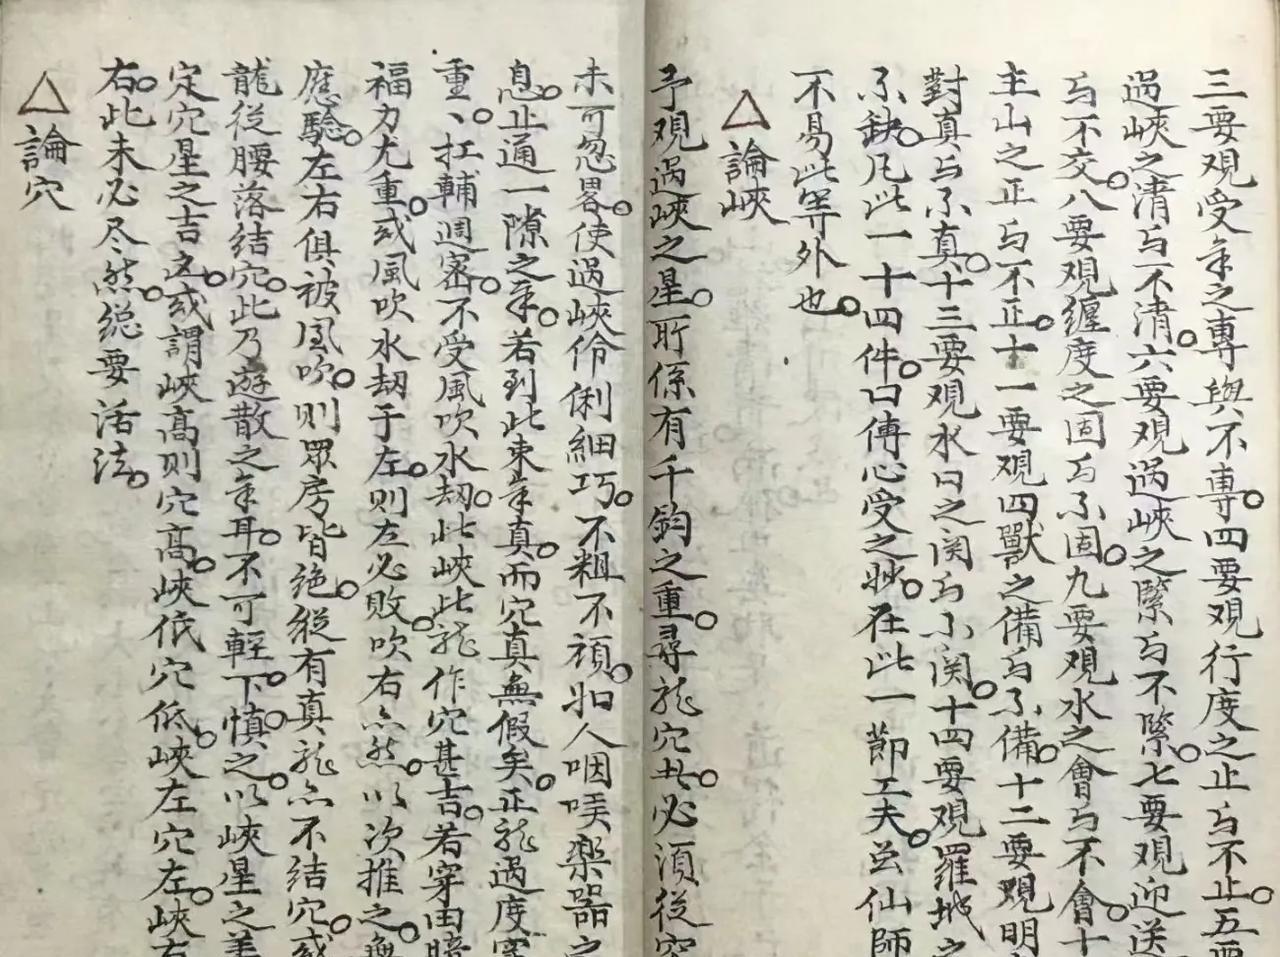 三要观受氣之專與不專四要观行度之止与不止五要
過峽之清与不清六要观過峽之緊与不緊七要观迎送
与不交八要观纏度之固与不固九要观水之會与不會十
主山之正与不正十一要观四獸之備与不備十二要观明
對真与不真十三要观水口之関与不関十四要观羅地之
不缺凡此一十四件口傳心受之妙在此一節工夫茲仙師
不易此等外也
△論峽
予观過峽之星所係有千鈞之重尋龍穴者必須從
未可忽畧使過峽伶俐細巧不粗不頑如人咽喉樂器之
息止通一隙之氣若到此束氣真而穴真無假矣正龍過度
重重扛輔週密不受風吹水刼此峽此龍作穴甚吉若穿田暗
福力尤重或風吹水刼于左則左必敗吹右亦然以次推之無
應驗左右俱被風吹則眾房皆絕縱有真龍亦不結穴或
龍從腰落結穴此乃遊散之氣耳不可輕下慎之以峽星之美
定穴星之吉凶或謂峽高則穴高峽低穴低峽左穴左峽右
右此未必尽然總要活法
△論穴